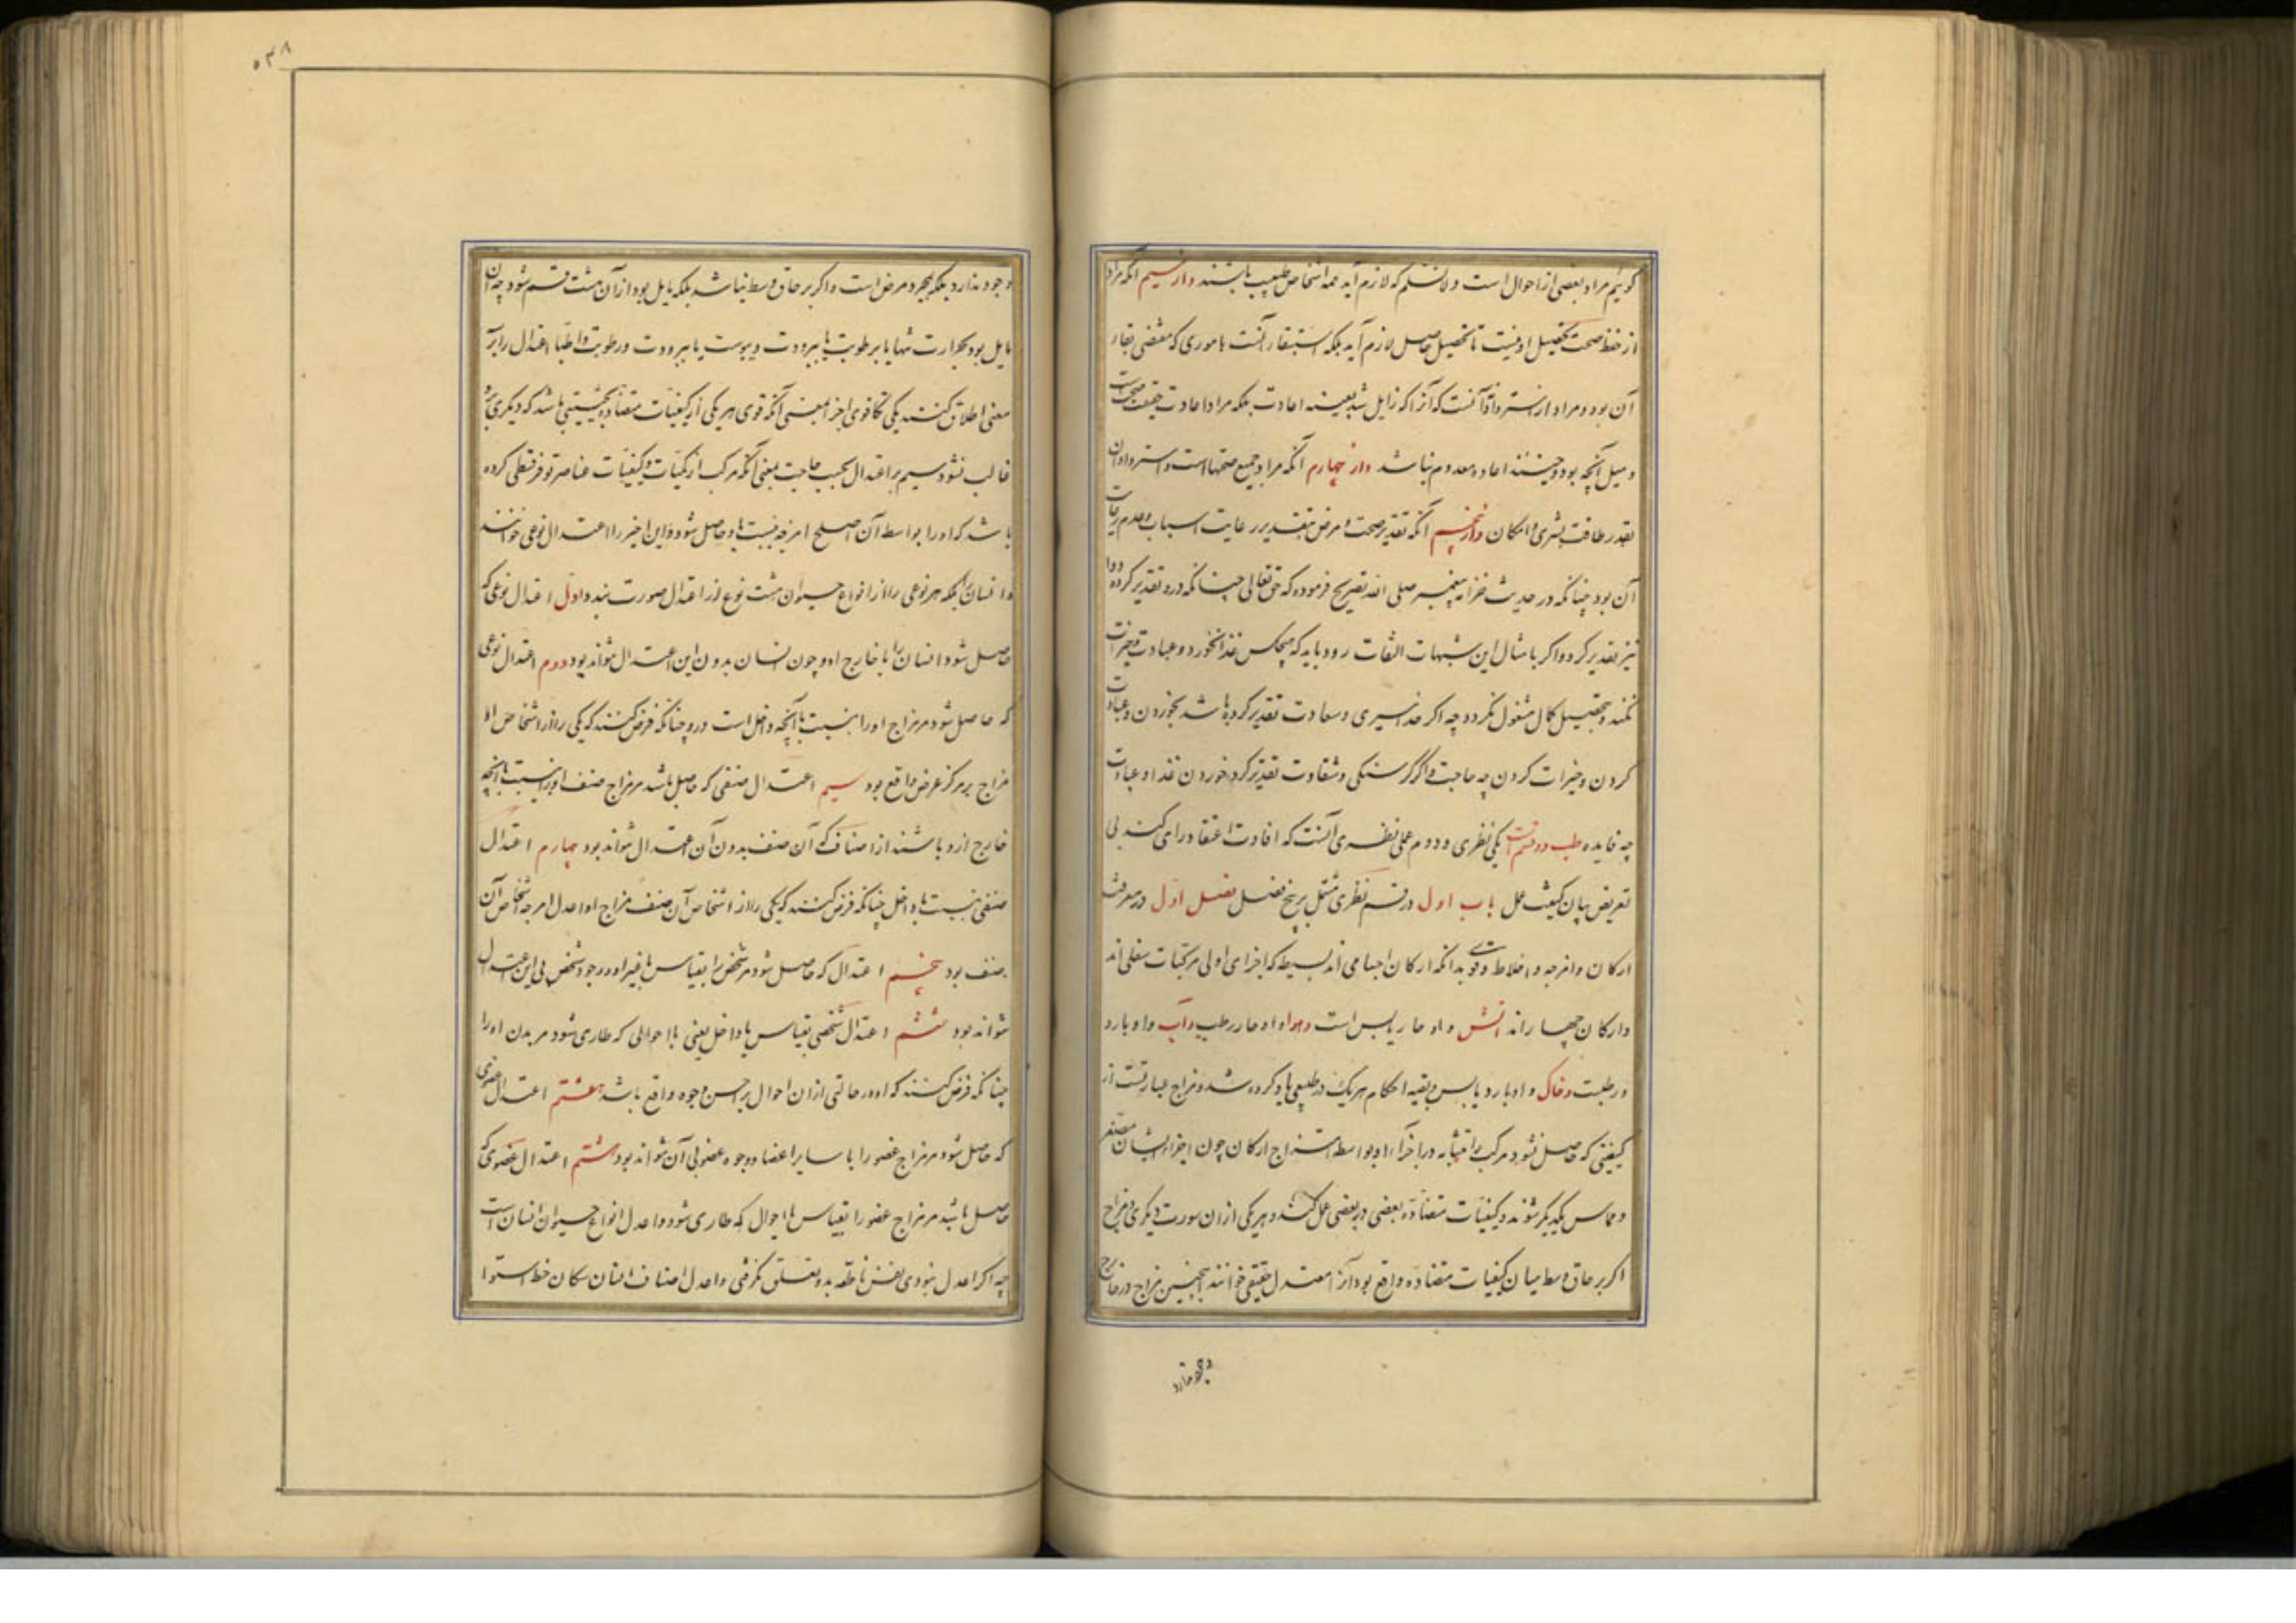 گوئیم مراد بعضی از احوال است و لانسلم که لازم آید همه اشخاص طبیب باشند و از سیم آنکه مراد
از حفظ صحت تحصیل او نیست تا تحصیل حاصل لازم آید بلکه استبقاء آنست باموری که مقتضی بقاء
آن بود و مراد از استرداد آنست که آنرا که زایل شد بعینه اعادت بلکه مراد اعادت حقیقت صحت است
و میل آنچه بود و حینئذ اعاده معدوم نباشد و از چهارم آنکه مراد جمیع صحتها است و استرداد آن
بقدر طاقت بشری و امکان و از پنجم آنکه تقدیر صحت و مرض بتقدیر رعایت اسباب و عدم رعایت
آن بود چنانکه در حدیث خزانه پیغمبر صلی الله تصریح فرموده که حق تعالی چنانکه درد تقدیر کرده دوا
نیز تقدیر کرد و اگر بامثال این شبهات التفات رود باید که هیچکس غذا نخورد و عبادت و خیرات
نکند و بتحصیل کمال مشغول نگردد چه اگر خدا سیری و سعادت تقدیر کرده باشد بخوردن و عبادت
کردن و خیرات کردن چه حاجت و اگر گرسنگی و شقاوت تقدیر کرد خوردن غذا و عبادت
چه فایده طب دو قسم است یکی نظری و دوم عملی نظری آنست که افادت اعتقاد رای کند بی
تعریض بیان کیفیت عمل باب اول در قسم نظری مشتمل بر پنج فصل فصل اول در معرفت
ارکان و امزجه و اخلاط و قوی بدانکه ارکان اجسامی اند بسیطه که اجزای اولی مرکبات سفلی اند
و ارکان چهار اند آتش و او حار یابس است و هوا و او حار رطب و آب و او بارد
و رطبست و خاک و او بارد یابس و بقیه احکام هر یک در طبیعی یاد کرده شد و مزاج عبارتست از
کیفیتی که حاصل شود مرکب را متشابه در اجزاء او بواسطه امتزاج ارکان چون اجزاء ایشان متصغر
و مماس یکدیگر شوند و کیفیات متضاده بعضی در بعضی عمل کند و هر یکی از آن سورت دیگری و مزاج
اگر بر حاق وسط میان کیفیات متضاده واقع بود آنرا معتدل حقیقی خوانند و همچنین مزاج در خارج
وجود ندارد
۵۳۸
وجود ندارد بلکه بمجرد فرض است و اگر بر حاق وسط نباشد بلکه مایل بود از آن هشت قسم شود چه آن
مایل بود بحرارت تنها یا برطوبت یا ببرودت و یبوست یا ببرودت و رطوبت و اطبا اعتدال را بر
معنی اطلاق کنند یکی تکافوی اجزا بمعنی آنکه قوی هر یکی از کیفیات متضاده بحیثیتی باشد که دیگری برو
غالب نشود سیم بر اعتدال بحسب حاجت یعنی آنکه مرکب از کمیات و کیفیات عناصر توفر قسطی کرده
باشد که او را بواسطه آن اصلح امزجه نسبت باو حاصل شود و این اخیر را اعتدال نوعی خوانند
و انسان را بلکه هر نوعی را از انواع حیوان هشت نوع از اعتدال صورت بندد اول اعتدال نوعی که
حاصل شود انسان را با خارج او و چون انسان بدون این اعتدال نتواند بود دوم اعتدال نوعی
که حاصل شود مر مزاج او را بنسبت با آنچه داخل است درو چنانکه فرض کنند که یکی را از اشخاص او
مزاج بر مرکز عرض واقع بود سیم اعتدال صنفی که حاصل باشد مر مزاج صنف او را نسبت با آنچه
خارج ازو باشند از اصناف که آن صنف بدون آن اعتدال نتواند بود چهارم اعتدال
صنفی نسبت با داخل چنانکه فرض کنند که یکی را از اشخاص آن صنف مزاج او اعدل امزجه اشخاص آن
صنف بود پنجم اعتدال که حاصل شود مر شخص را بقیاس با غیر او و وجود شخص بی این اعتدال
نتواند بود ششم اعتدال شخصی بقیاس با داخل یعنی با احوالی که طاری شود مر بدن او را
چنانکه فرض کنند که او در حالتی از ان احوال بر احسن وجوه واقع باشد هفتم اعتدال عضوی
که حاصل شود مر مزاج عضو را با سایر اعضا و وجوه عضو بی آن نتواند بود هشتم اعتدال عضوی که
حاصل باشد مر مزاج عضو را بقیاس با احوال که طاری شود و اعدل انواع حیوان انسان است
چه اگر اعدل نبودی نفس ناطقه بدو تعلق نگرفتی و اعدل اصناف انسان سکان خط استوا